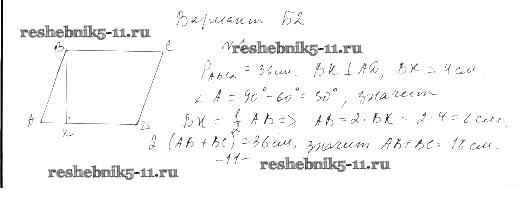 Вариант Б2
reshebnik5-11.ru
reshebnik5-11.ru
B C
P_ABCD = 36 см. BK ⊥ AD, BK = 4 см.
∠ A = 90° - 60° = 30°, значит
A K D
BK = 1/2 AB => AB = 2 · BK = 2 · 4 = 8 см.
2 (AB + BC) = 36 см, значит AB + BC = 18 см.
-11-
reshebnik5-11.ru
reshebnik5-11.ru